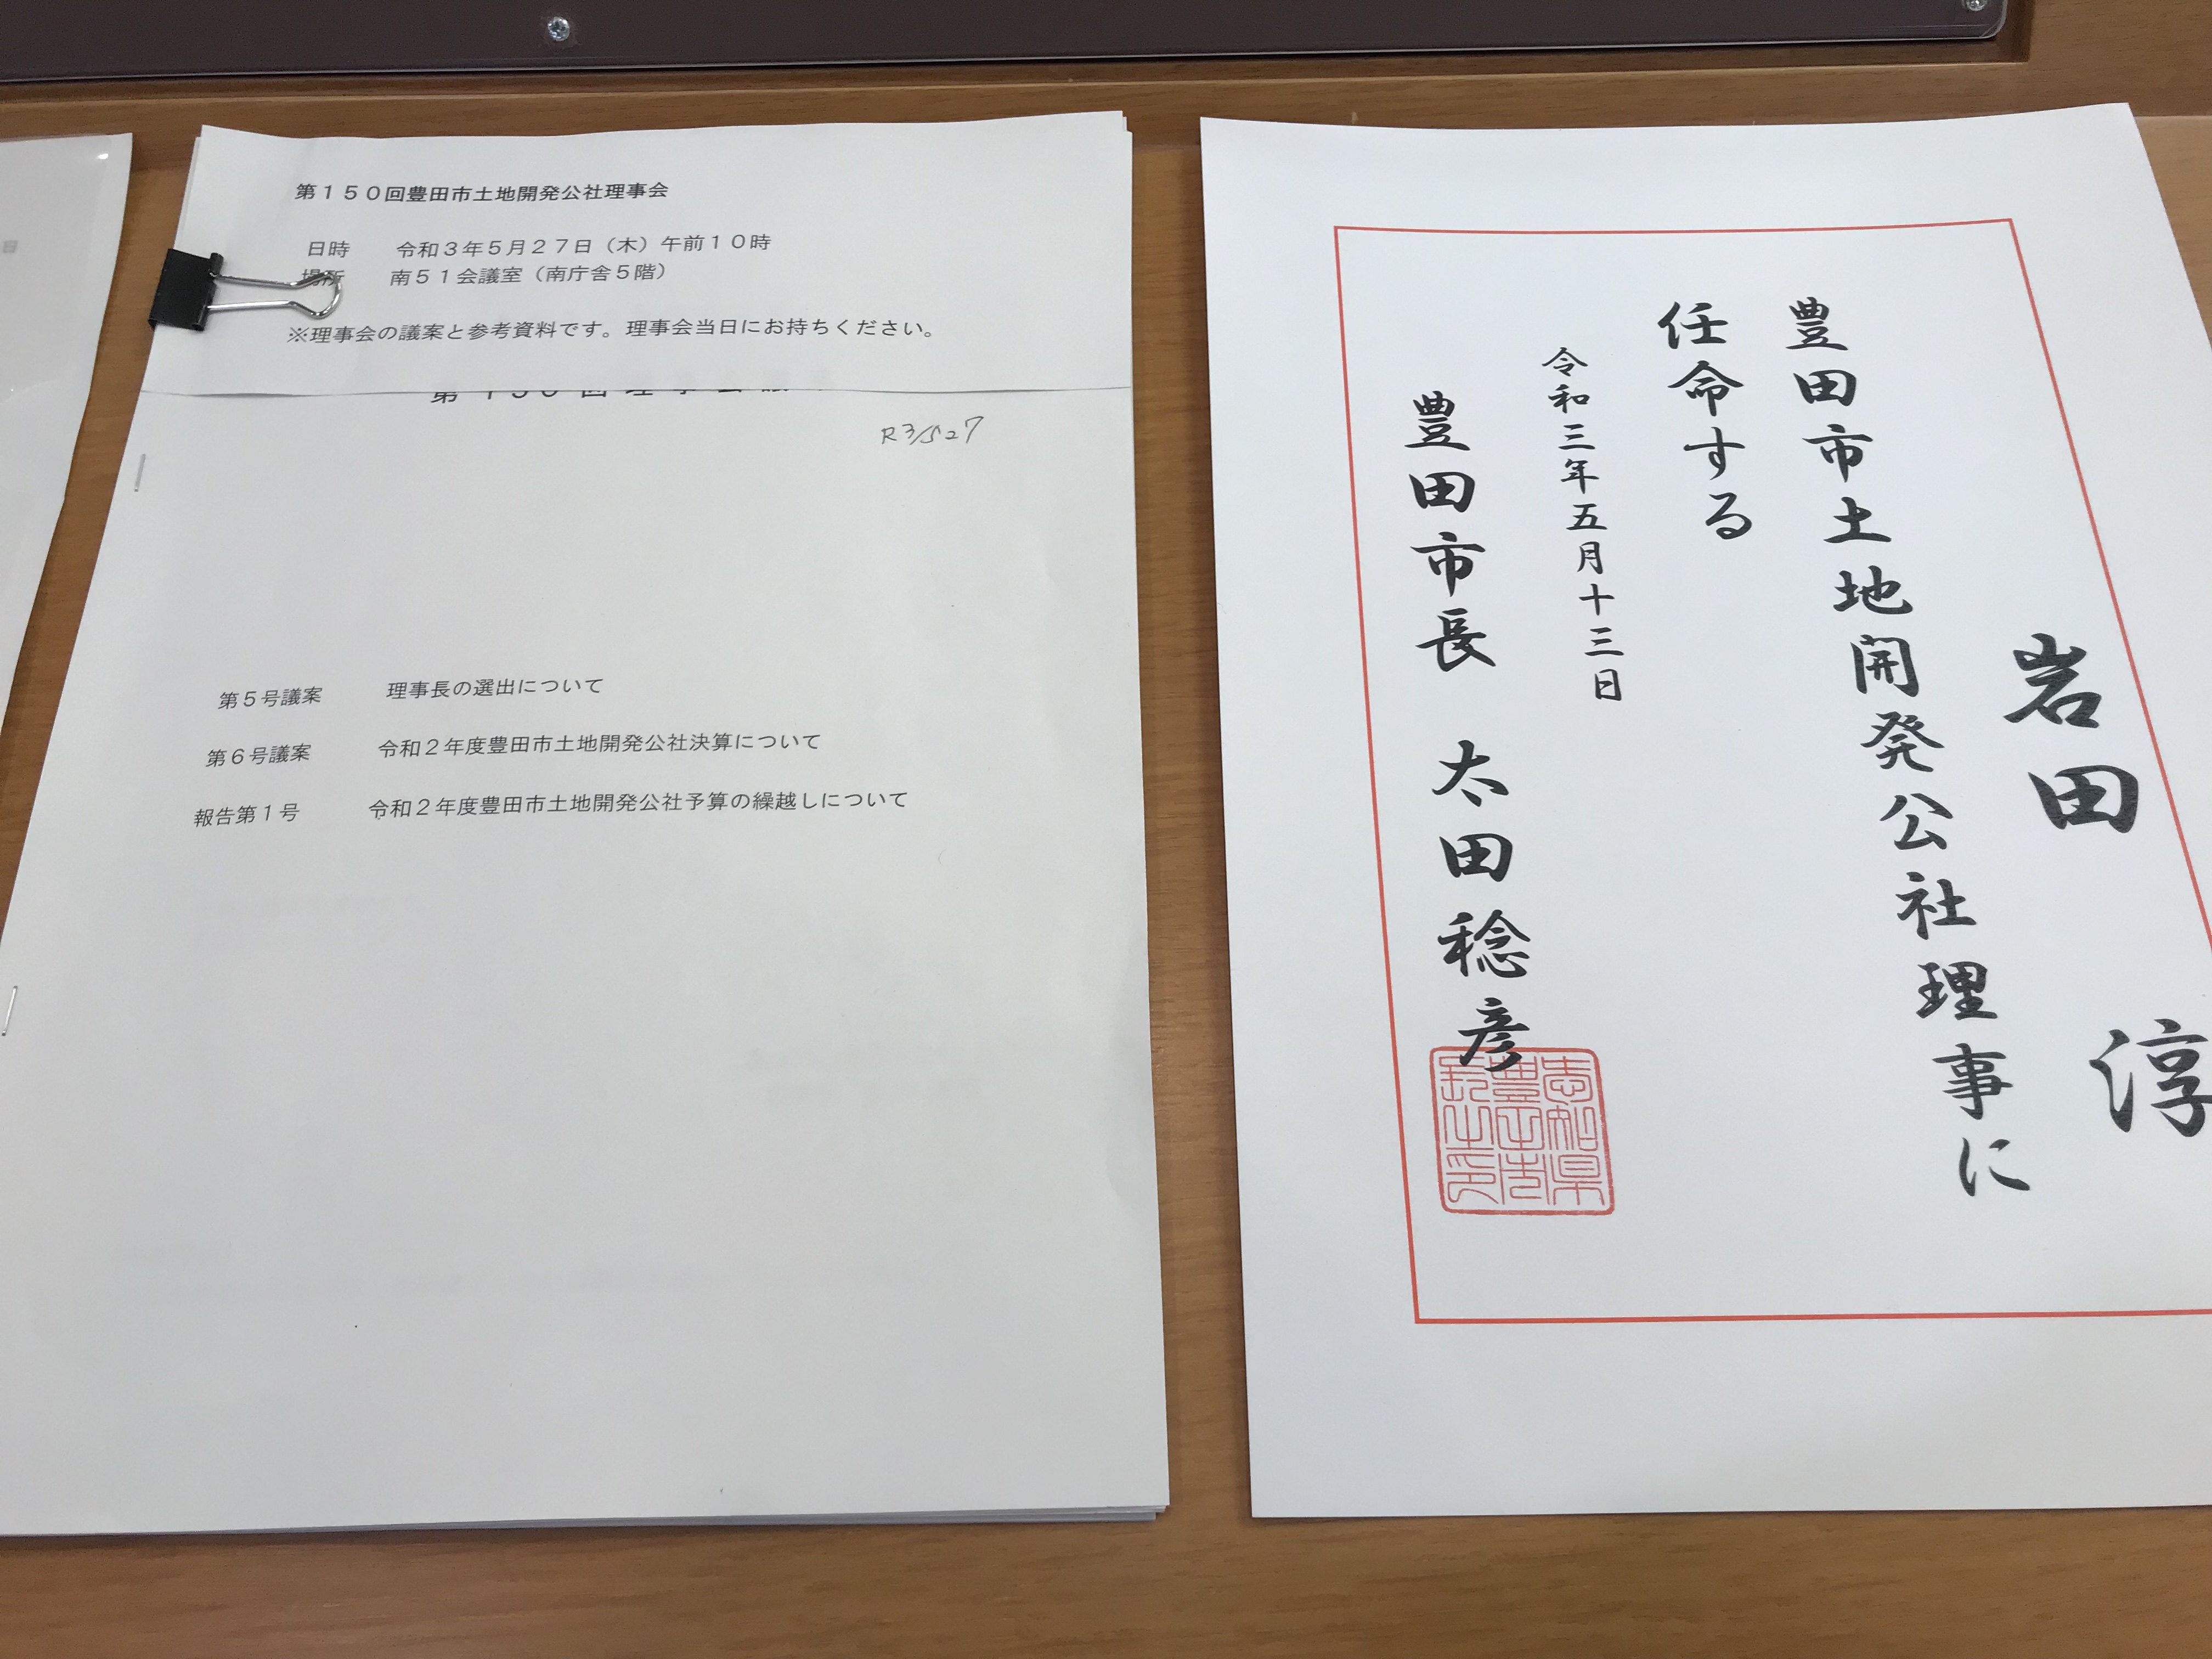 第１５０回豊田市土地開発公社理事会
日時　令和３年５月２７日（木）午前１０時
場所　南５１会議室（南庁舎５階）
※理事会の議案と参考資料です。理事会当日にお持ちください。
第１５０回理事会
R3/5.27
第５号議案　理事長の選出について
第６号議案　令和２年度豊田市土地開発公社決算について
報告第１号　令和２年度豊田市土地開発公社予算の繰越しについて
岩田　淳
豊田市土地開発公社理事に
任命する
令和三年五月十三日
豊田市長　太田稔彦